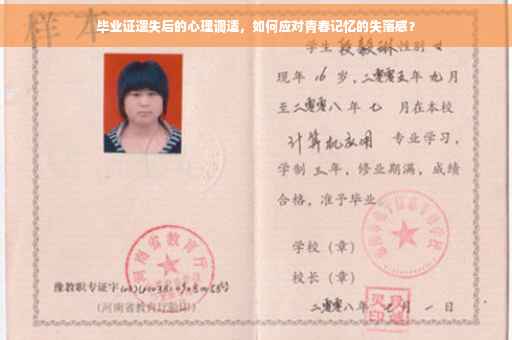 毕业证遗失后的心理调适，如何应对青春记忆的失落感？
样本
学生 段毅琳 性别 女
现年 16 岁，二零零五年 九 月
至二零零八 年 七 月在本校
计算机应用 专业学习，
学制 三 年，修业期满，成绩
合格，准予毕业
学校（章）
校长（章）
二零零八年 七 月 一 日
豫教职专证字
（河南省教育厅验印）
河南省教育厅